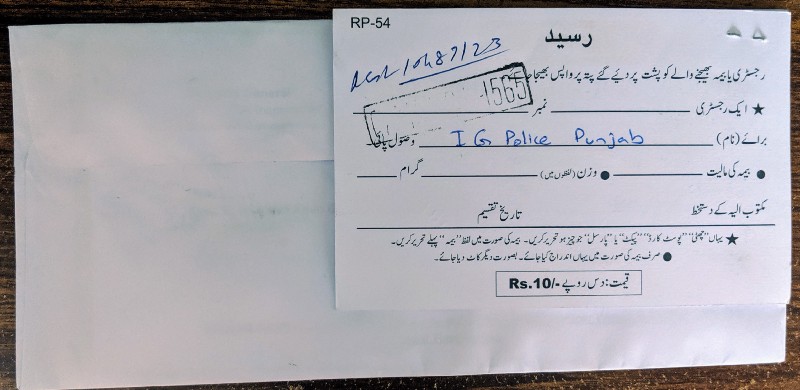 RP-54
رسید
رجسٹری یا بیمہ بھیجنے والے کو پشت پر دیئے گئے پتہ پر واپس بھیجا جائے
1565
★ ایک رجسٹری نمبر
برائے (نام) I G Police Punjab وصول پائی
● بیمہ کی مالیت ● وزن (لفظوں میں) گرام
مکتوب الیہ کے دستخط تاریخ تقسیم
★ یہاں "چھٹی" "پوسٹ کارڈ" "پیکٹ" یا "پارسل" جو چیز ہو تحریر کریں۔ بیمہ کی صورت میں لفظ "بیمہ" پہلے تحریر کریں۔
● صرف بیمہ کی صورت میں یہاں اندراج کیا جائے۔ بصورت دیگر کاٹ دیا جائے۔
قیمت: دس روپے Rs.10/-